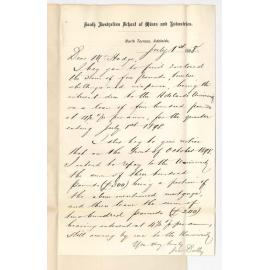 South Australian School of Mines and Industries.
North Terrace, Adelaide,
July 1st 1898.
Dear Mr Hodge,
I beg you to find enclosed
the sum of five pounds, twelve
shillings and sixpence, being the
interest due to the Adelaide University
on a loan of five hundred pounds
at 4½ % per annum, for the quarter
ending July 1st 1898
I also beg to give notice
that on the first of October 1898
I intend to repay to the University
the sum of three hundred
pounds (£300) being a portion of
the above mentioned mortgage,
and then leave the sum of
two hundred pounds (£200)
bearing interest at 4½ % per annum
still owing by me to the University
Yrs very truly